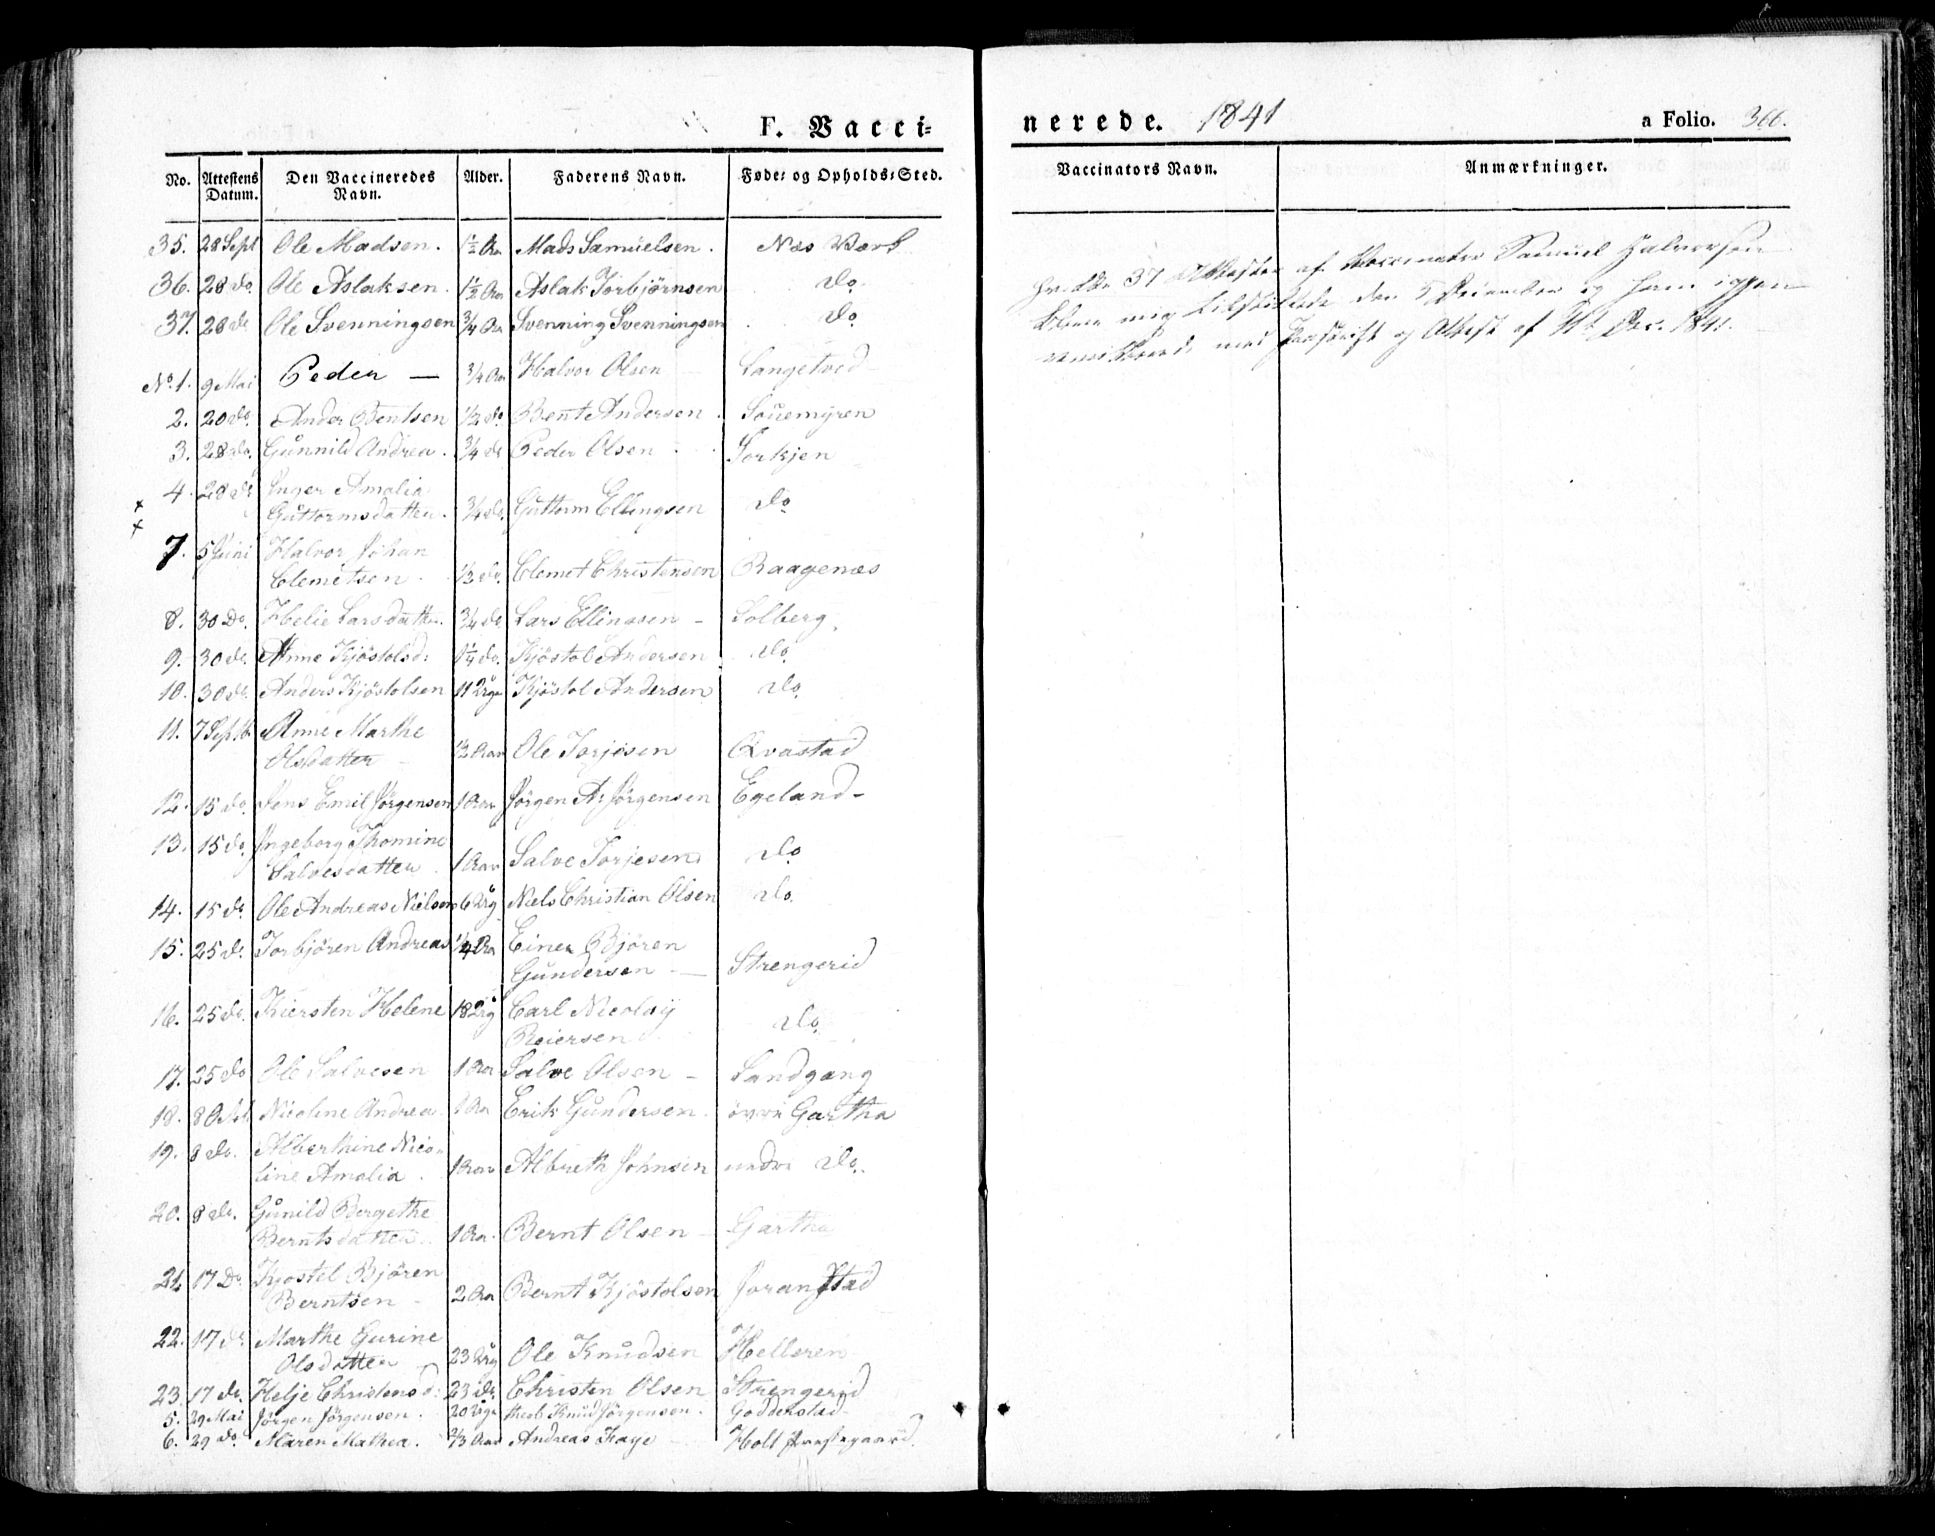 F. Vacci=
nerede. 1841
a Folio. 366.
No. Attestens Datum. Den Vaccineredes Navn. Alder. Faderens Navn. Føde= og Opholds=Sted.
Vaccinators Navn. Anmærkninger.
35. 28 Sept Ole Madsen. 1½ Aar Mads Samuelsen. Næs Værk
36. 28 do. Ole Aslaksen. 1½ Aar Aslak Torbjörnsen do.
37. 28 do Ole Svenningsen ¾ Aar Svenning Svenningsen do.
37 Attester af Vaccinateur Samuel Halvorsen
mig den 5 December og ham igjen
med Paaskrift og Attest af Dec. 1841.
No. 1. 9 Mai Peder — ¾ Aar Halvor Olsen Langetved
2. 20 do. Ander Bentsen ½ do. Bent Andersen. Souemyren
3. 28 do. Gunnild Andrea. ¾ do Peder Olsen Torkjen
4. 28 do Inger Amalia
Guttormsdatter. ¾ do. Guttorm Ellingsen do.
7. 5 Juni Halvor Johan
Clemetsen ½ do. Clemet Christensen Raagenæs
8. 30 Do. Helie Larsdatter. ¾ do Lars Ellingsen – Solberg.
9. 30 do. Anne Kjöstolsd: 1¼ do. Kjöstol Andersen do.
10. 30 do. Anders Kjöstolsen 11 Kjöstol Andersen do.
11. 7 Septb Anne Marthe
Olsdatter ½ Aar Ole Torjesen Qvastad
12. 15 do. Jens Emil Jörgensen 1 Aar Jörgen A. Jörgensen Egeland –
13. 15 do. Ingeborg Thomine
Salvesdatter. 1 Aar Salve Torjesen do.
14. 15 do. Ole Andreas Nielsen 6 Niels Christian Olsen do.
15. 25 do. Torbjören Andreas ¼ Aar Einer Björen
Gundersen — Strengerid
16. 25 do. Kiersten Helene 18 Carl Nicolaij
Reiersen do.
17. 25 do Ole Salvesen 1 Aar Salve Olsen – Sandgang
18. 8 Oct Nicoline Andrea. 1 Aar Erik Gundersen. övre Gartha
19. 8 do. Alberthine Nico-
line Amalia. 1 Aar Albreth Johnsen nedre do.
20. 8 do. Gunild Bergethe
Berntsdatter. 1 Aar Bernt Olsen – Gartha
21. 17 Do. Kjöstel Björen
Berntsen – 2 Aar Bernt Kjöstolsen Joranstad
22. 17 do. Marthe Gurine
Olsdatter 23 Ole Knudsen Helleren
23. 17 do. Helje Christensd: 23 do. Christen Olsen Strengerid
5. 29 Mai Jörgen Jörgensen. 20 Knud Jörgensen. Godderstad
6. 29 do. Maren Mathea. ⅔ Aar Andreas Faye – Holt